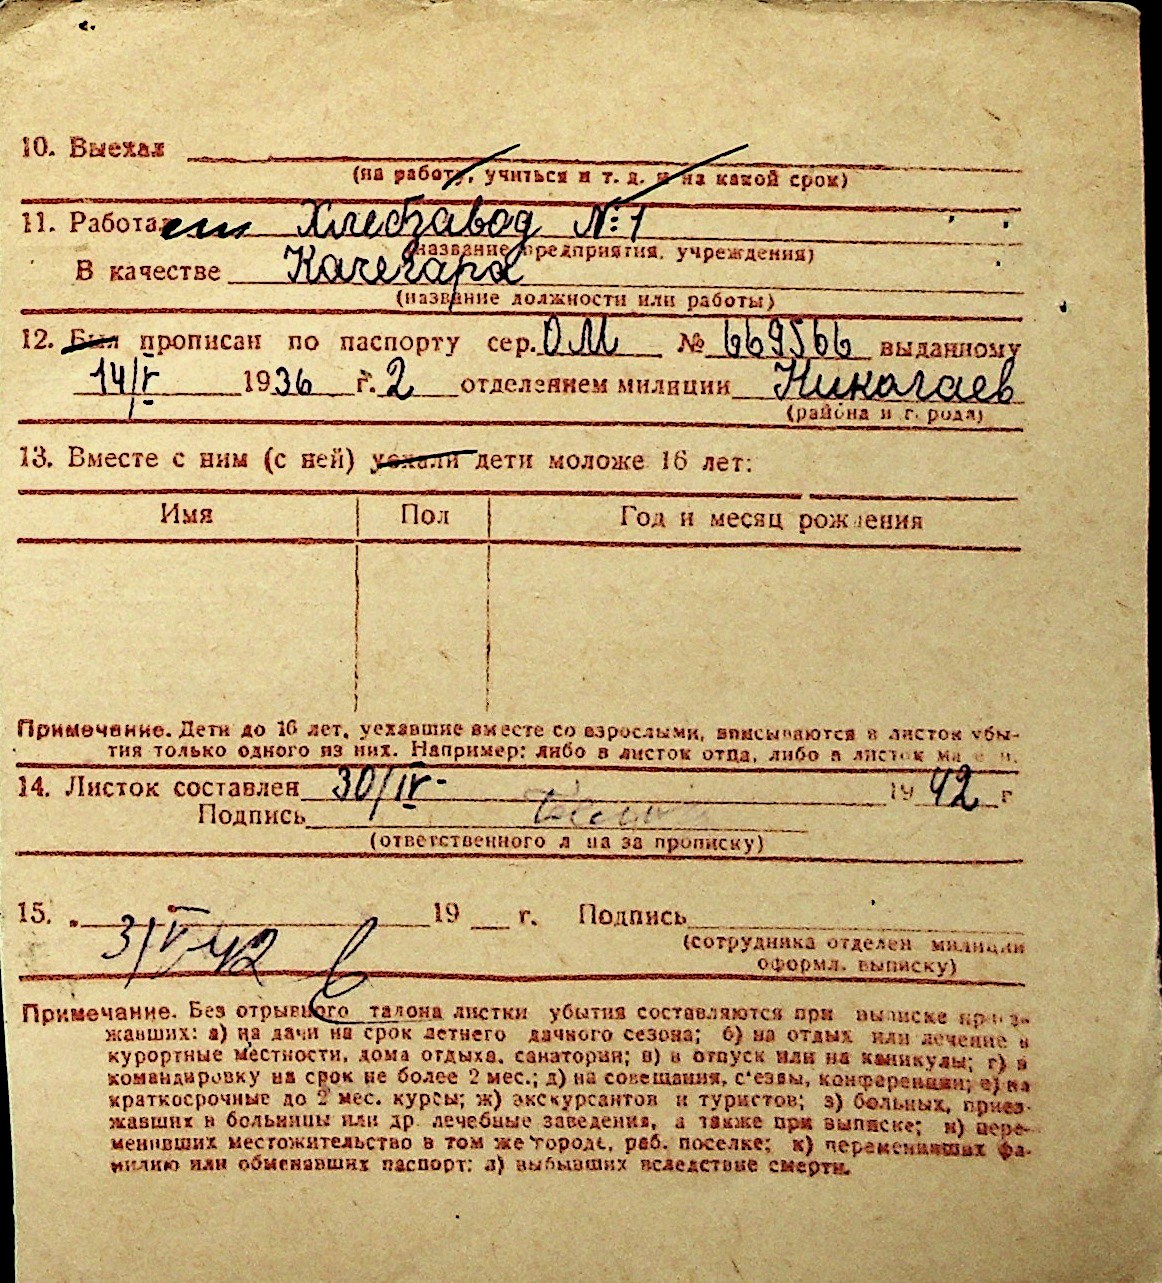 10. Выехал
(на работу, учиться и т. д. и на какой срок)
11. Работает Хлебзавод №1
(название предприятия, учреждения)
В качестве Качегара
(название должности или работы)
12. Был прописан по паспорту сер. ОМ № 669566 выданному
14/V 1936 г. 2 отделением милиции Николаев
(района и города)
13. Вместе с ним (с ней) уехали дети моложе 16 лет:
Имя Пол Год и месяц рождения
Примечание. Дети до 16 лет, уехавшие вместе со взрослыми, вписываются в листок убы-
тия только одного из них. Например: либо в листок отца, либо в листок матери.
14. Листок составлен 30/IV- 1942 г
Подпись
(ответственного лица за прописку)
15. 19 г. Подпись
3/V 42
(сотрудника отделен милиции
оформл. выписку)
Примечание. Без отрывного талона листки убытия составляются при выписке приез-
жавших: а) на дачи на срок летнего дачного сезона; б) на отдых или лечение в
курортные местности, дома отдыха, санатории; в) в отпуск или на каникулы; г) в
командировку на срок не более 2 мес.; д) на совещания, с'езды, конференции; е) на
краткосрочные до 2 мес. курсы; ж) экскурсантов и туристов; з) больных, приез-
жавших в больницы или др. лечебные заведения, а также при выписке; и) пере-
менивших местожительство в том же городе, раб. поселке; к) переменивших фа-
милию или обменявших паспорт; л) выбывших вследствие смерти.